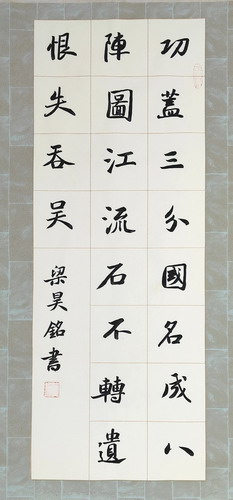 功蓋三分國名成八
陣圖江流石不轉遺
恨失吞吴
梁昊銘書